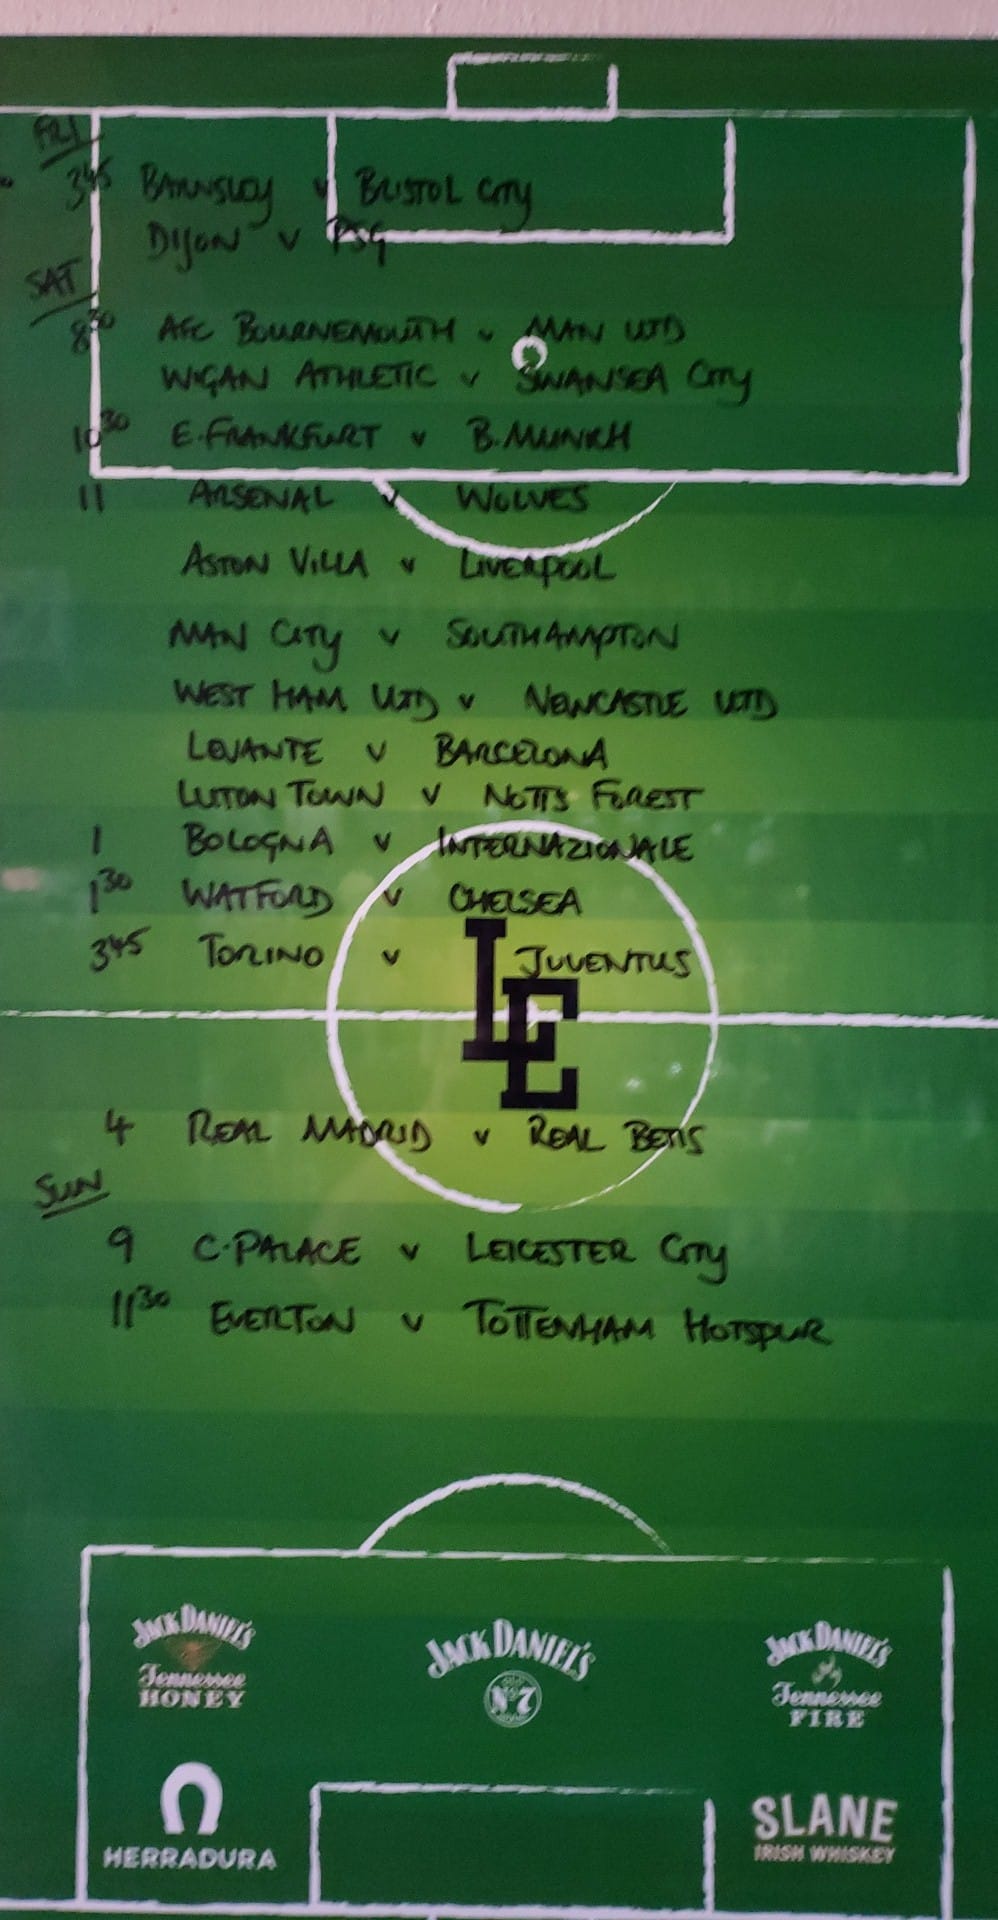 FRI
3 45 BARNSLEY v BRISTOL CITY
DIJON v PSG
SAT
8 30 AFC BOURNEMOUTH v MAN UTD
WIGAN ATHLETIC v SWANSEA CITY
10 30 E.FRANKFURT v B.MUNICH
11 ARSENAL v WOLVES
ASTON VILLA v LIVERPOOL
MAN CITY v SOUTHAMPTON
WEST HAM UTD v NEWCASTLE UTD
LEVANTE v BARCELONA
LUTON TOWN v NOTTS FOREST
1 BOLOGNA v INTERNAZIONALE
1 30 WATFORD v CHELSEA
3 45 TORINO v JUVENTUS
LE
4 REAL MADRID v REAL BETIS
SUN
9 C.PALACE v LEICESTER CITY
11 30 EVERTON v TOTTENHAM HOTSPUR
JACK DANIEL'S
Tennessee
HONEY
JACK DANIEL'S
No 7
JACK DANIEL'S
Tennessee
FIRE
HERRADURA
SLANE
IRISH WHISKEY